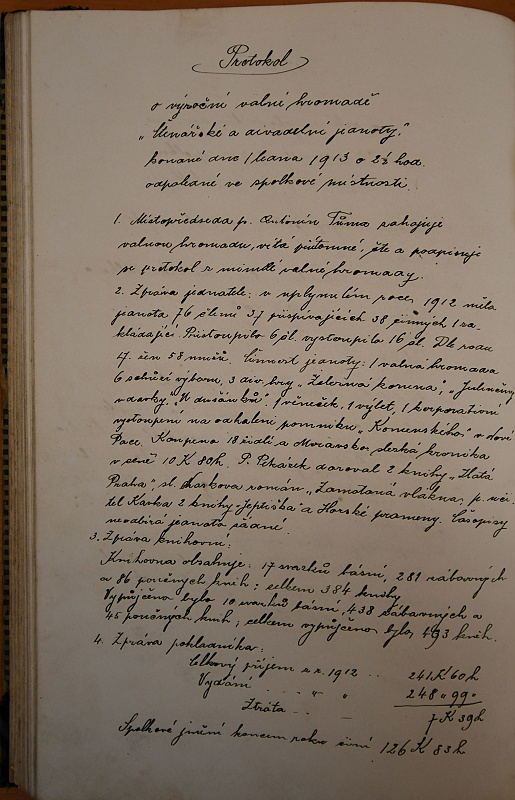 Protokol
o výroční valné hromadě
"Čtenářské a divadelní jednoty,"
konané dne 1 ledna 1913 o 2½ hod.
odpoledne ve spolkové místnosti.
1. Místopředseda p. Antonín Tůma zahajuje
valnou hromadu, vítá přítomné, čte a podpisuje
se protokol z minulé valné hromady.
2. Zpráva jednatele: v uplynulém roce 1912 měla
jednota 76 členů 37 přispívajících 38 činných 1 za-
kládající. Přistoupilo 6 čl. vystoupilo 16 čl. Dle rodu
17 žen 58 mužů. Činnost jednoty: 1 valná hromada
6 schůzí výboru, 3 div. hry "Železná koruna", "
" "U dušánků" 1 věneček, 1 výlet, 1 korporativní
vystoupení na odhalení pomníku "Komenského" v Nové
Pace. Koupeno 18 židlí a Moravsko-slezská kronika
v ceně 10 K 80h. P. Pekáček daroval 2 knihy "Zlatá
Praha" sl. román "Zamotaná vlákna, p. uči-
tel Kavka 2 knihy "Jeptiška" a Horské prameny. Časopisy
neodbírá jednota žádné.
3. Zpráva knihovní:
Knihovna obsahuje: 17 svazků básní, 281 zábavných
a 86 poučných knih; celkem 384 knihy
Vypůjčeno bylo 10 svazků básní, 438 zábavných a
45 poučných knih; celkem vypůjčeno bylo 493 knih.
4. Zpráva pokladníka:
Celkový příjem z r. 1912 .. 241 K 60 h
Vydání . . . . " " 248 " 99 "
Ztráta .. _ 7 K 39 h
Spolkové jmění koncem roku činí 126 K 83 h